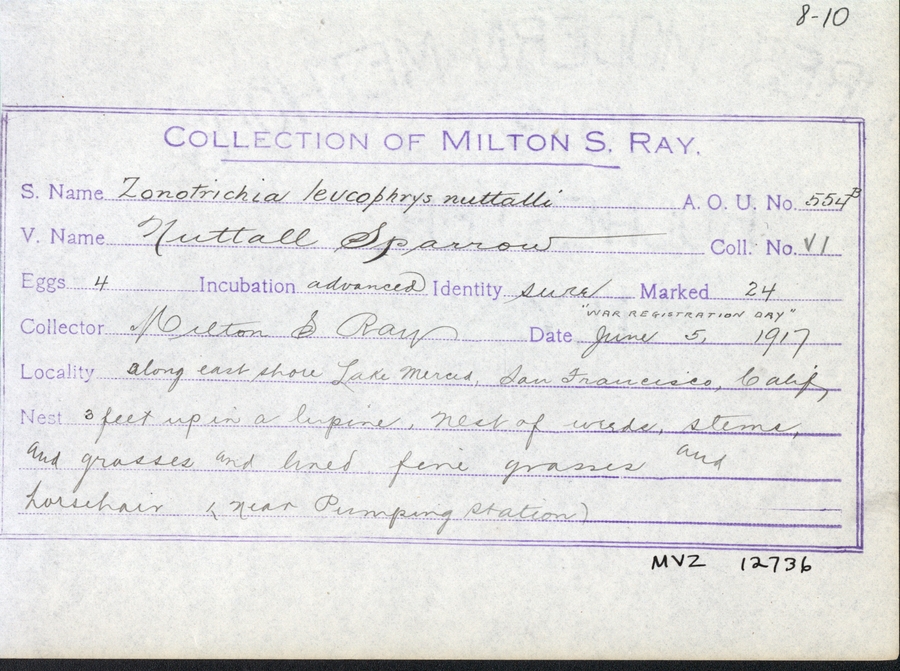 8-10
COLLECTION OF MILTON S. RAY.
S. Name Zonotrichia leucophrys nuttalli A. O. U. No. 554B
V. Name Nuttall Sparrow Coll. No. V1
Eggs 4 Incubation advanced Identity sure Marked 24
"WAR REGISTRATION DAY"
Collector Milton S Ray Date June 5, 1917
Locality along east shore Lake Merced, San Francisco, Calif,
Nest 3 feet up in a lupine, nest of weeds, stems,
and grasses and lined fine grasses and
horsehair (near Pumping Station)
MVZ 12736